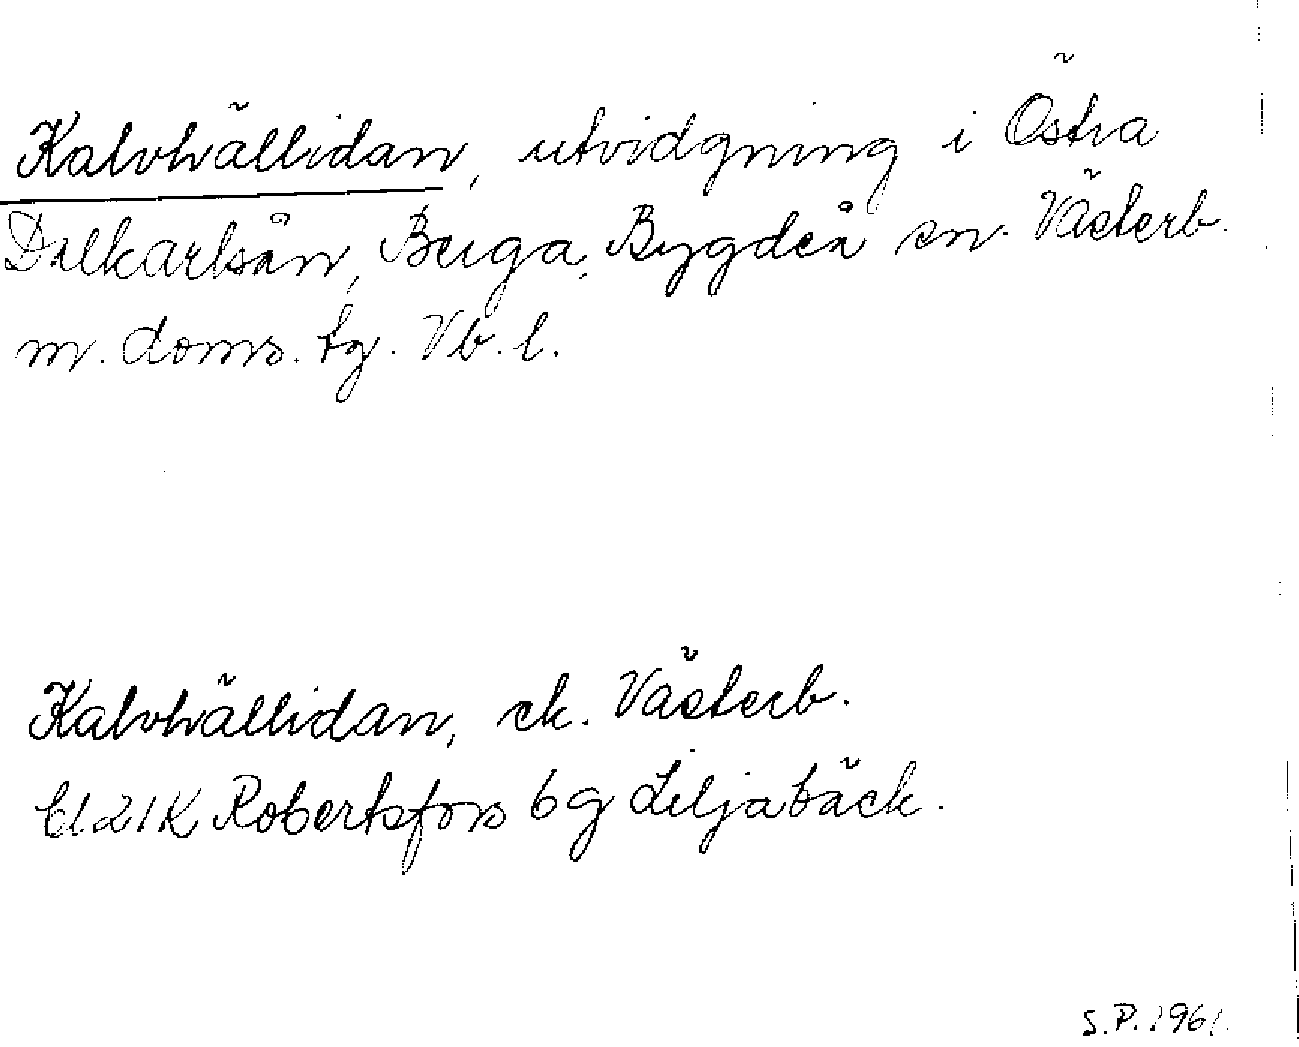 Kalvhällidan, utvidgning i Östra
Dalkarlsån, Berga, Bygdeå sn. Västerb.
m. doms. tg. Vb. l.
Kalvhällidan, ek. Västerb.
bl 21K Robertsfors 6g Liljabäck.
S.P. 1961.